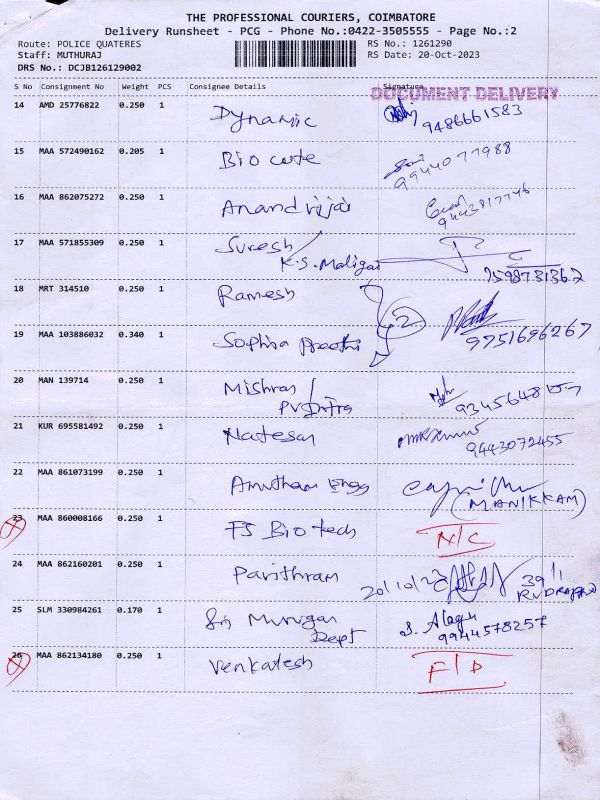 THE PROFESSIONAL COURIERS, COIMBATORE
Delivery Runsheet - PCG - Phone No.:0422-3505555 - Page No.:2
Route: POLICE QUATERES RS No.: 1261290
Staff: MUTHURAJ RS Date: 20-Oct-2023
DRS No.: DCJB126129002
S No Consignment No Weight PCS Consignee Details Signature
DOCUMENT DELIVERY
14 AMD 25776822 0.250 1 Dynamic 9486661583
15 MAA 572490162 0.205 1 Bio cute 9944077988
16 MAA 862075272 0.250 1 Anand vijai 9443817746
17 MAA 571855309 0.250 1 Suresh /
K.S. Maligai 9598731362
18 MRT 314510 0.250 1 Ramesh
2
19 MAA 103886032 0.340 1 Sophia Preethi 9751696267
20 MAN 139714 0.250 1 Mishras /
PV Infra
21 KUR 695581492 0.250 1 Natesan 9443072455
22 MAA 861073199 0.250 1 Amutham
(MANIKKAM)
23 MAA 860008166 0.250 1 FS Bio tech N/C
24 MAA 862160201 0.250 1 Pavithram 20/10/23
25 SLM 330984261 0.170 1 Sri Murugan S. Alagu
Dept 9944578257
26 MAA 862134180 0.250 1 Venkatesh F/D